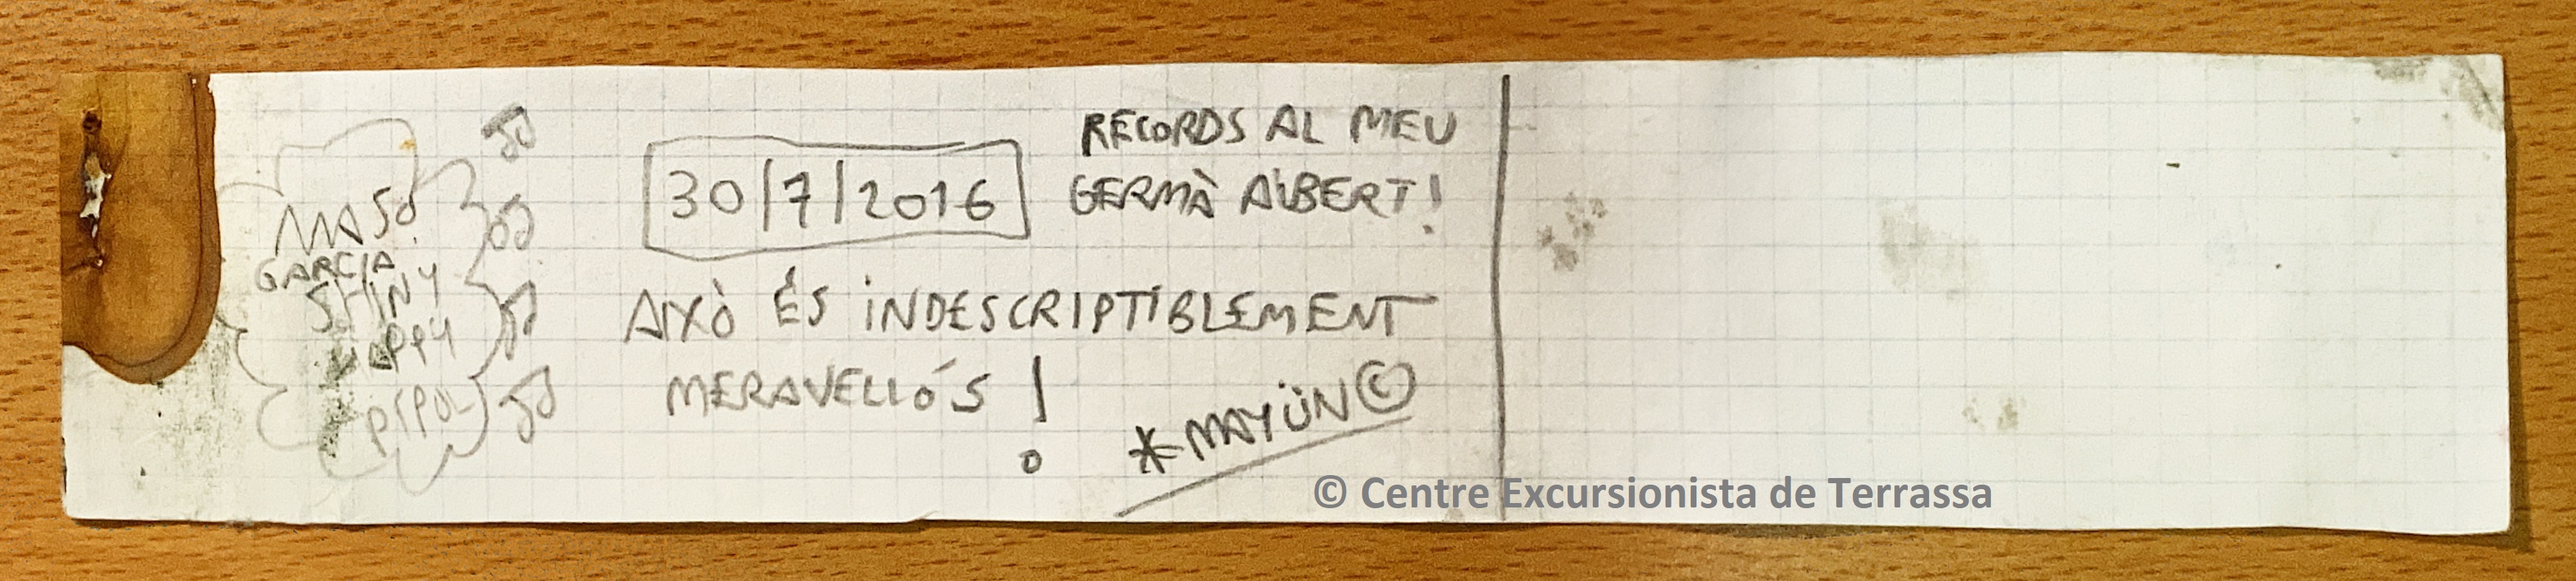 MASO
GARCIA
SHINY
HAPPY
PIPOL
30/7/2016
RECORDS AL MEU
GERMÀ ALBERT!
AIXÒ ÉS INDESCRIPTIBLEMENT
MERAVELLÓS!
*MAYÜN©
© Centre Excursionista de Terrassa